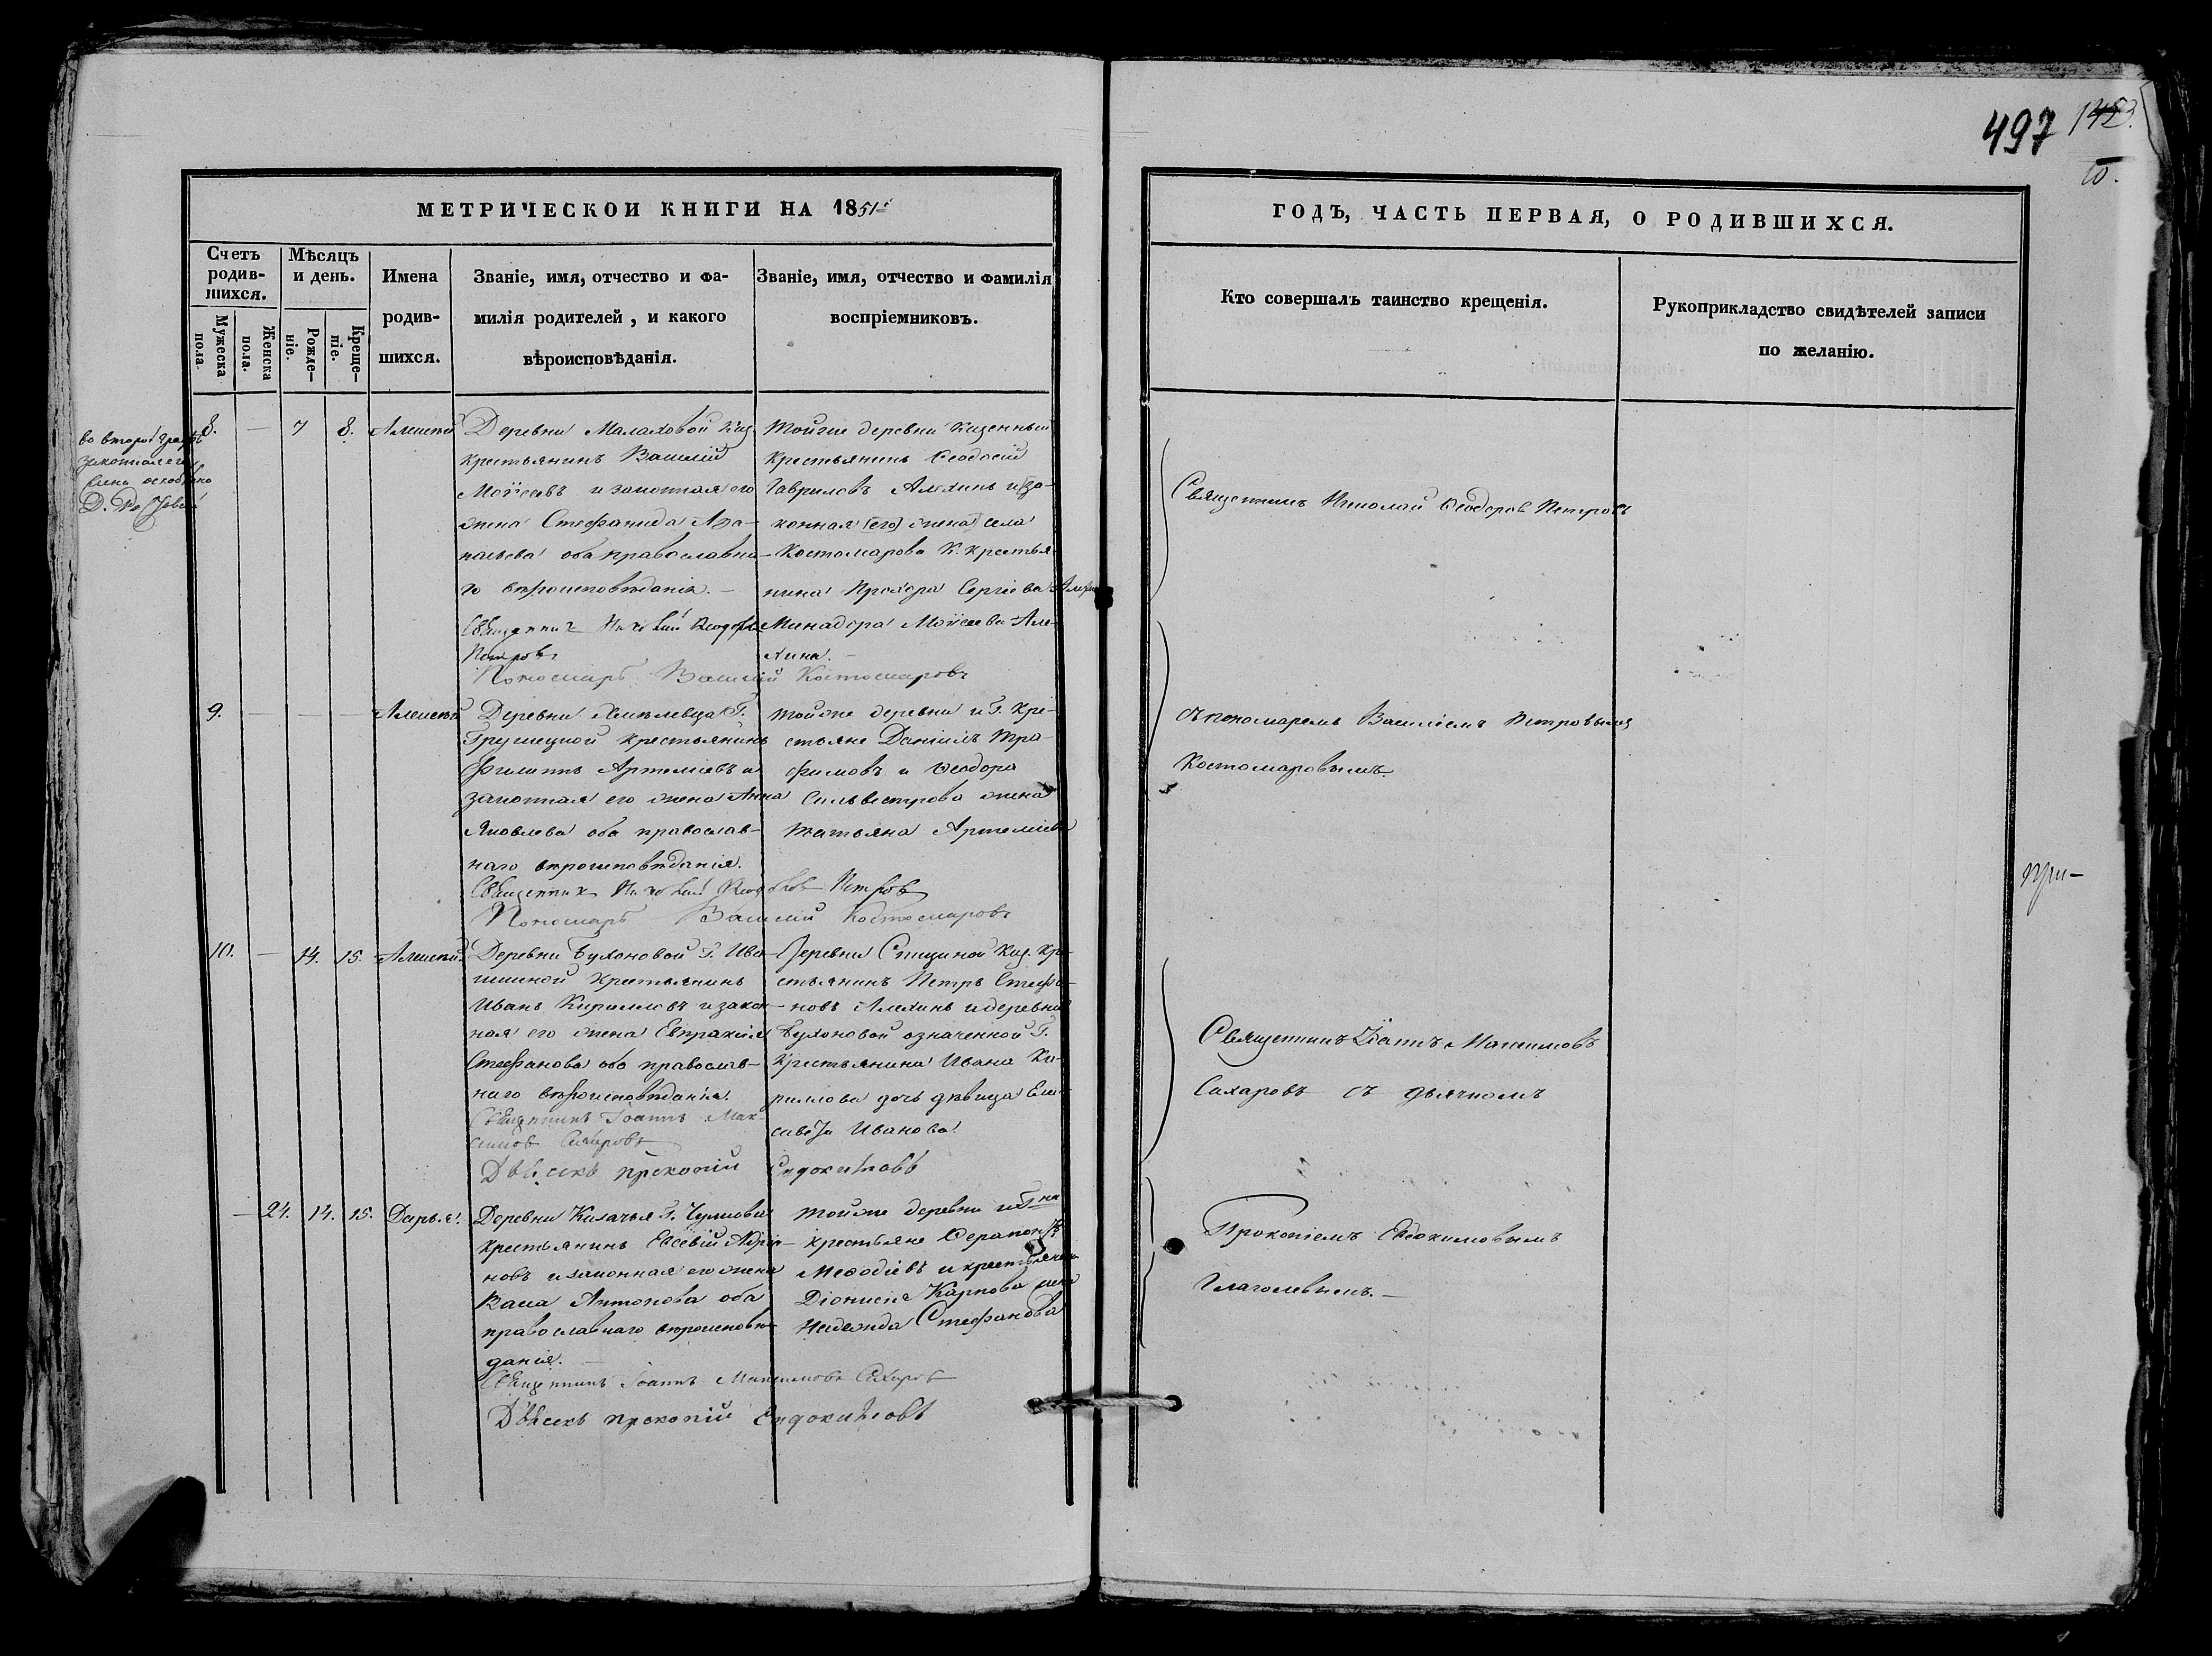 497 1453.
10.
МЕТРИЧЕСКОЙ КНИГИ НА 1851й
ГОДЪ, ЧАСТЬ ПЕРВАЯ, О РОДИВШИХСЯ.
Счетъ родив-
шихся.
Мужеска пола.
Женска пола.
Мѣсяцъ и день.
Рожде-
ніе.
Креще-
ніе.
Имена
родив-
шихся.
Званіе, имя, отчество и фа-
милія родителей, и какого
вѣроисповѣданія.
Званіе, имя, отчество и фамилія
воспріемниковъ.
Кто совершалъ таинство крещенія.
Рукоприкладство свидѣтелей записи
по желанію.
во второй графѣ
законная его
8. — 7 8. Алексѣй
Деревни Малаховой Каз.
крестьянинъ Василій
Моѵсеевъ и законная его
жена Стефанида Афа-
насьева оба православна-
го вѣроисповѣданія. —
Священникъ Николай Ѳеодоровъ
Петровъ
Пономарь Василій Костомаровъ
Тойже деревни Казенный
крестьянинъ Ѳеодосій
Гавриловъ Алехинъ и за-
конная (его) жена села
Костомарова К. крестья-
нина Прохора Сергіева
Минадора Моѵсеева Але-
хина. —
Священникъ Николай Ѳеодоровъ Петровъ
9. — — — Алексѣй
Деревни Г.
Грушецкой крестьянинъ
Филиппъ Артеміевъ и
законная его жена Анна
Яковлева оба православ-
наго вѣроисповѣданія.
Священникъ Николай Ѳеодоровъ Петровъ
Пономарь Василій Костомаровъ
тойже деревни и Г. кре-
стьяне Даніилъ Тро-
фимовъ и Ѳеодора
Сильвестрова жена
Татьяна Артеміева
съ пономаремъ Василіемъ Петровымъ
Костомаровымъ.
при-
10. — 14. 15. Алексѣй.
Деревни Бухоновой Г. Ива-
шкиной крестьянинъ
Иванъ Кирилловъ и закон-
ная его жена Евпраксія
Стефанова оба православ-
наго вѣроисповѣданія.
Священникъ Іоаннъ Мак-
симовъ Сахаровъ
Дьячекъ Прокопій Евдокимовъ
Деревни Спициной Каз. кре-
стьянинъ Петръ Стефа-
новъ Алехинъ и деревни
Бухоновой означенной Г.
крестьянина Ивана Ки-
риллова дочь дѣвица Ели-
савета Иванова.
Священникъ Іоаннъ Максимовъ
Сахаровъ съ дьячкомъ
— 24. 14. 15. Дарья.
Деревни Казачья Г.
крестьянинъ Евсевій Адріа-
новъ и законная его жена
Васса Антонова оба
православнаго вѣроисповѣ-
данія. —
Священникъ Іоаннъ Максимовъ Сахаровъ
Дьячекъ Прокопій Евдокимовъ
тойже деревни и Гна
крестьяне Серапіонъ
Меѳодіевъ и крестьянина
Діонисія Карпова жена
Надежда Стефанова
Прокопіемъ Евдокимовымъ
Глаголевымъ. —